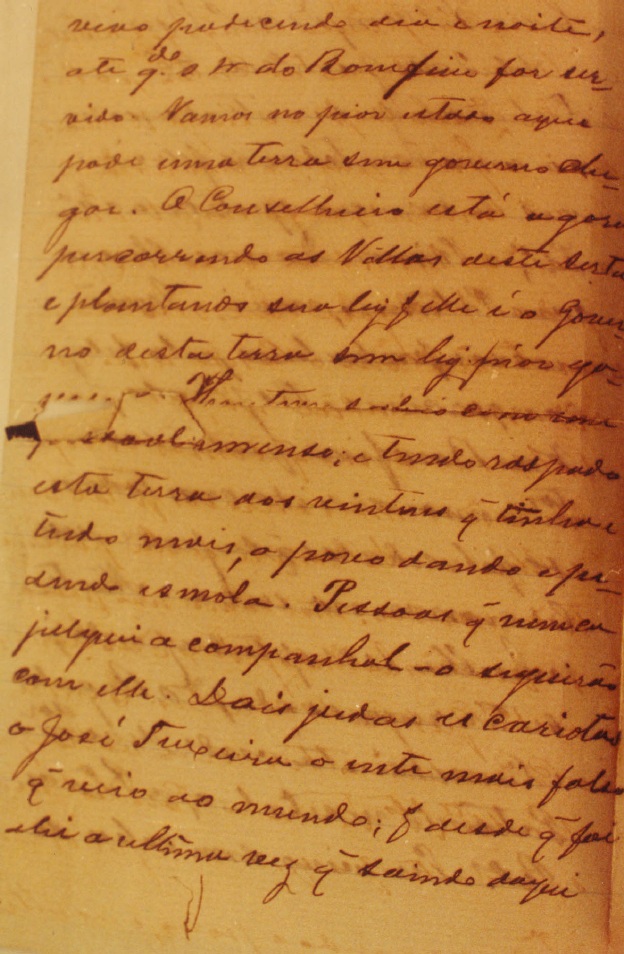 vivo padecendo dia e noite,
até q.do o Sr do Bomfim for ser-
vido. Vamos no pior estado a que
pode uma terra sem governo che-
gar. O Conselheiro está agora
percorrendo as Villas deste sertã
e plantando sua ley q elle é o Gover-
no desta terra sem ley pior go-
Elle tem
immenso; e tendo raspado
esta terra dos vintens q tinha e
tudo mais, o povo dando e pe-
dindo esmola. Pessoas q nunca
julguei acompanhal-o seguirão
com elle. Dois judas iscariotas
o José Teixeira o ente mais falso
q̃ veio ao mundo; q desde q̃ foi
ahi a ultima vez q̃ saindo daqui